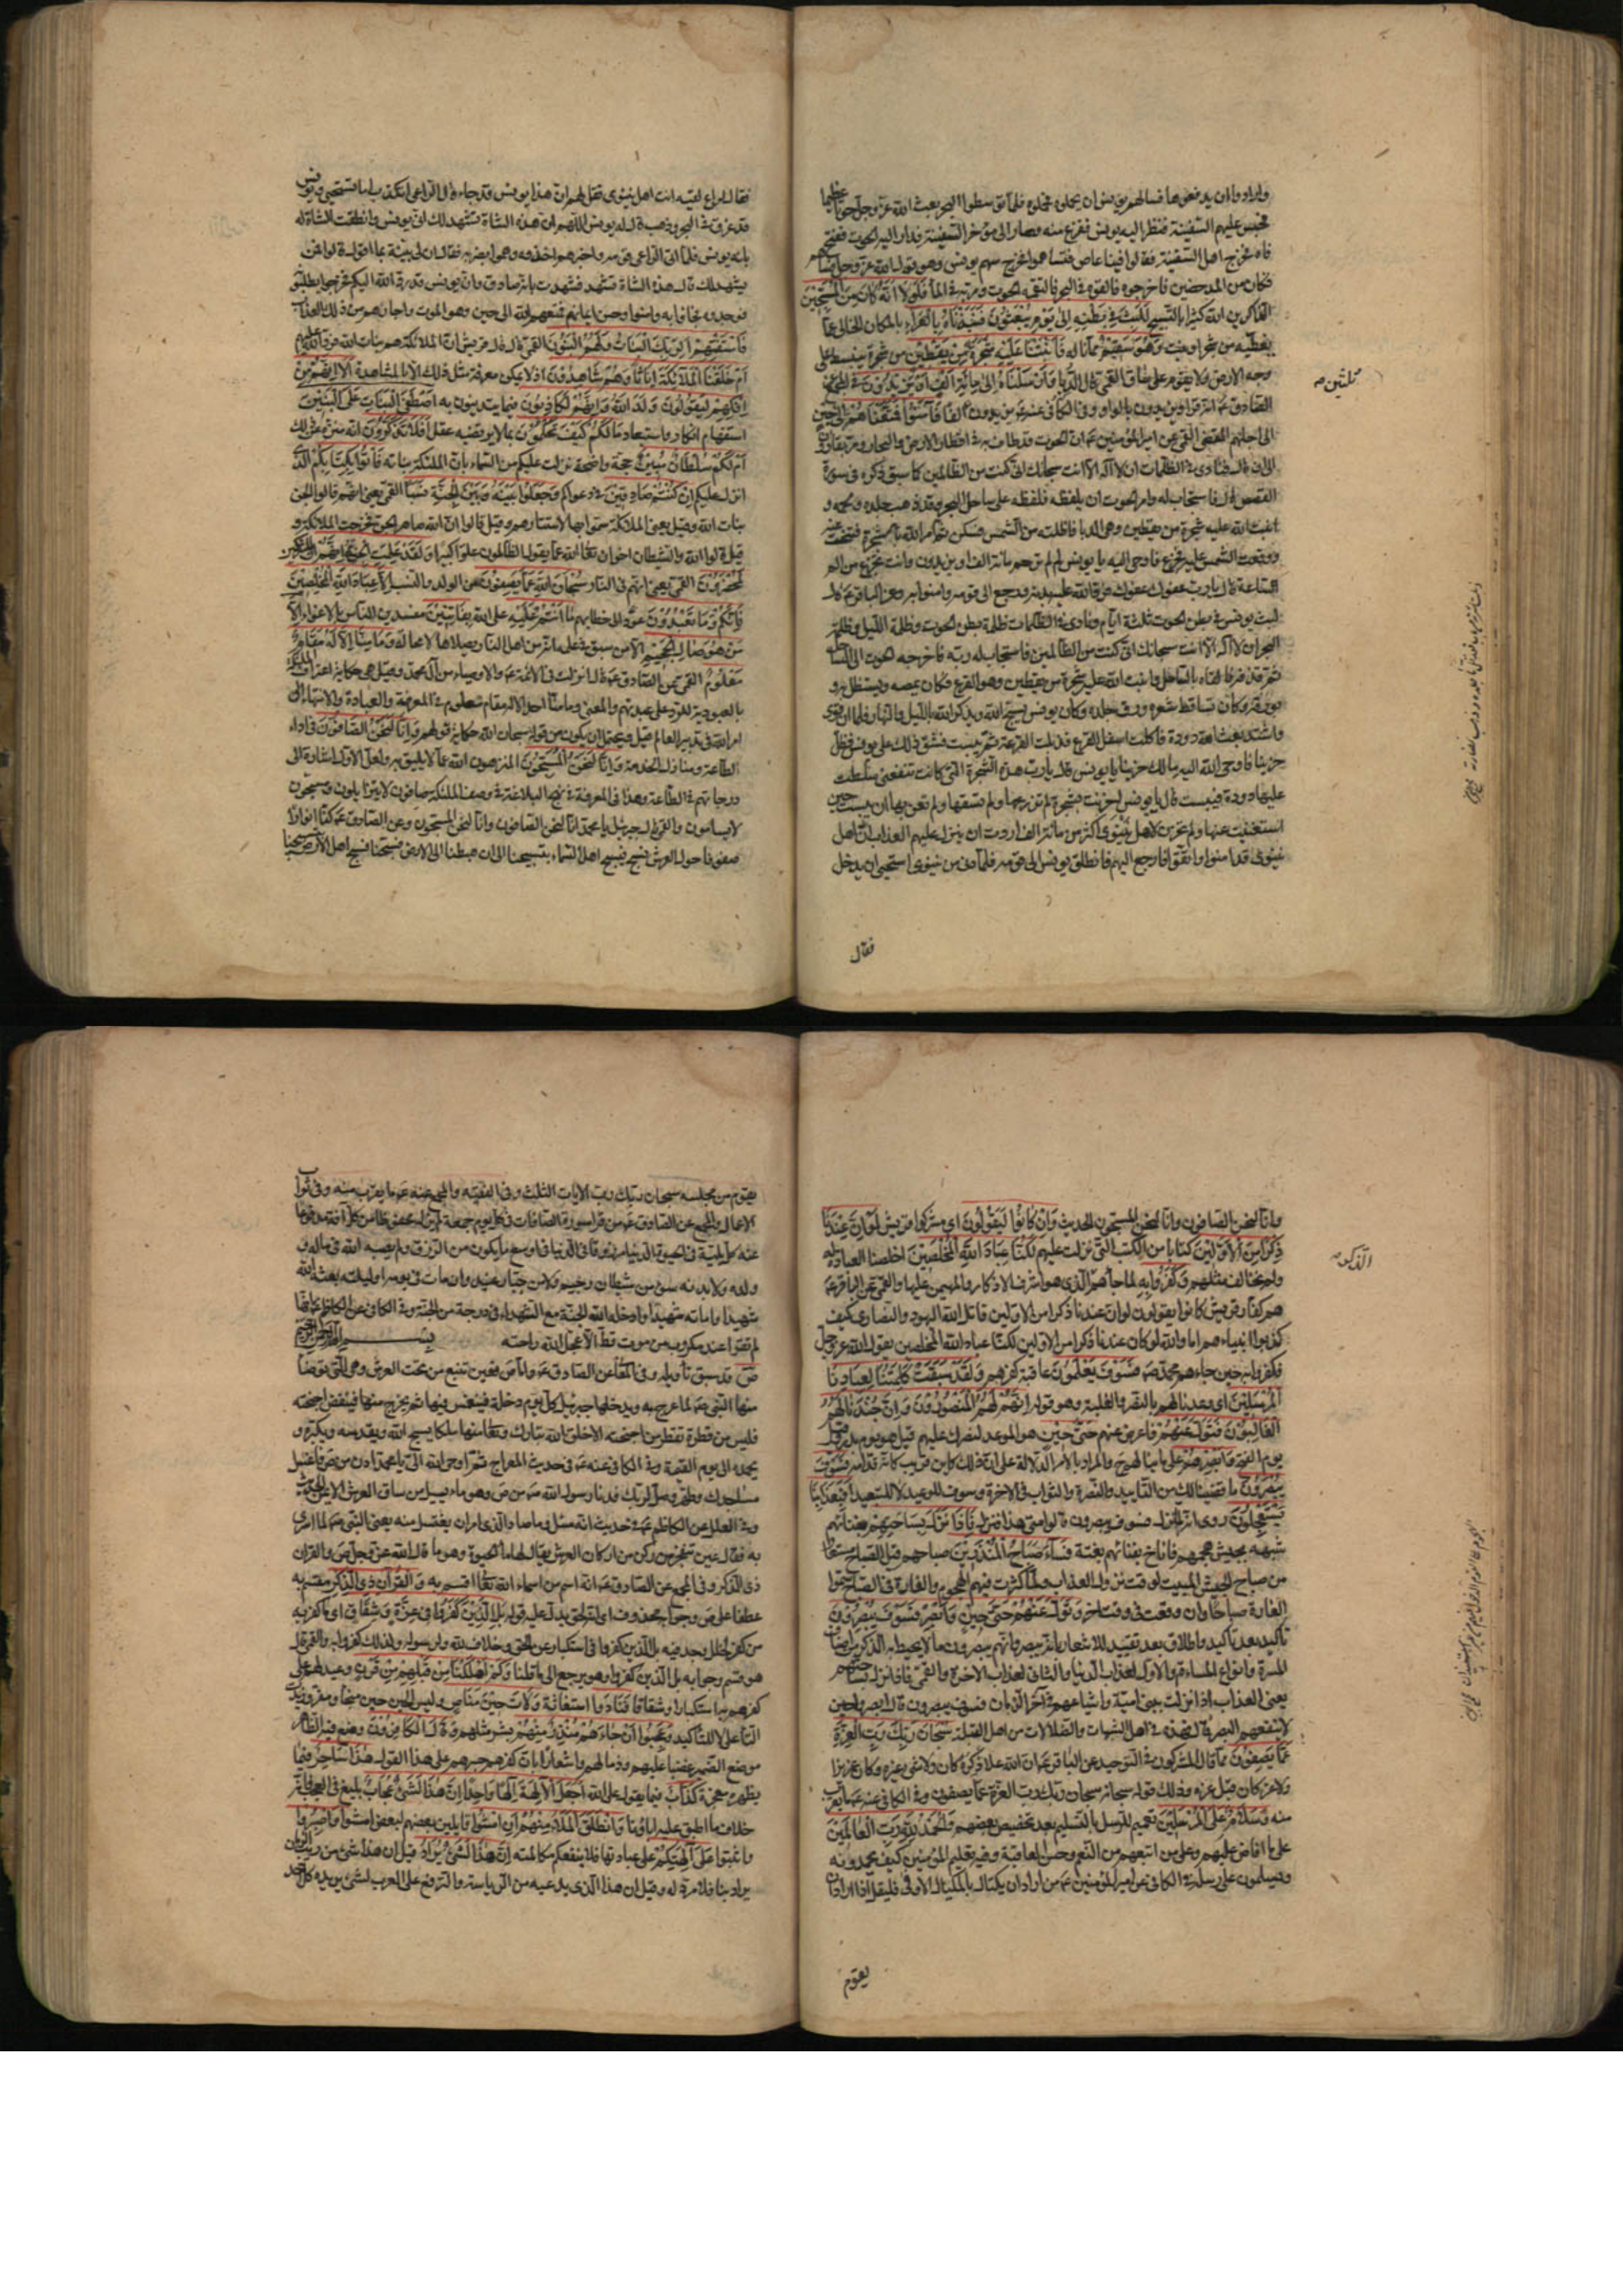 وارادوا ان يدفعوها فسالهم يونس ان يحملوه فحملوه فلما توسطوا البحر بعث الله عز وجل حوتا عظيما
فحبس عليهم السفينة فنظر اليه يونس ففزع منه وصار الى مؤخر السفينة فدار اليه الحوت ففتح
فاه فخرج اهل السفينة فقالوا فينا عاص فتساهموا فخرج سهم يونس وهو قول الله عز وجل فساهم
فكان من المدحضين فاخرجوه فالقوه في البحر فالتقمه الحوت ومر به في الماء فَلَوْلَا اَنَّهُ كَانَ مِنَ الْمُسَبِّحِينَ
الذاكرين الله كثيرا بالتسبيح لَلَبِثَ فِي بَطْنِهِ اِلى يَوْمِ يُبْعَثُونَ فَنَبَذْنَاهُ بِالْعَرَاءِ بالمكان الخالي عما
يغطيه من شجر او نبت وَهُوَ سَقِيمٌ مما ناله فَاَنْبَتْنَا عَلَيْهِ شَجَرَةً مِنْ يَقْطِينٍ من شجر ينبسط على
وجه الارض ولا يقوم على ساق القمي قال الدبا وَاَرْسَلْنَاهُ اِلى مِائَةِ اَلْفٍ اَوْ يَزِيدُونَ في المجمع عن
الصادق ع انه قرا ويزيدون بالواو وفي الكافي عنه ع يزيدون الفا فَآمَنُوا فَمَتَّعْنَاهُمْ اِلى حِينٍ
ثلثين ص
الى اجلهم المقضي القمي عن امير المؤمنين ع ان الحوت قد طاف به في اقطار الارض والبحار ومر بقارون
الى ان قال فنادى في الظلمات ان لا اله الا انت سبحانك اني كنت من الظالمين كما سبق ذكره في سورة
القصص قال فاستجاب له وامر الحوت ان يلفظه فلفظه على ساحل البحر وقد ذهب جلده ولحمه و
انبت الله عليه شجرة من يقطين وهي الدبا فاظلته من الشمس فسكن ثم امر الله الشجرة فتنحت عنه
ووقعت الشمس عليه فجزع فاوحى اليه يا يونس لم لم ترحم مائة الف او يزيدون وانت تجزع من الم
الساعة قال يا رب عفوك عفوك فرد الله عليه بدنه فرجع الى قومه وامنوا به وعن الباقر ع قال
لبث يونس في بطن الحوت ثلاثة ايام ونادى في الظلمات ظلمة بطن الحوت وظلمة الليل وظلمة
البحر ان لا اله الا انت سبحانك اني كنت من الظالمين فاستجاب له ربه فاخرجه الحوت الى الساحل
ثم قذفه فالقاه بالساحل وانبت الله عليه شجرة من يقطين وهو القرع فكان يمصه ويستظل به و
بورقه وكان تساقط شعره ورق جلده وكان يونس يسبح الله ويذكر الله بالليل والنهار فلما ان قوى
واشتد بعث الله دودة فاكلت اسفل القرع فذبلت القرعة ثم يبست فشق ذلك على يونس فظل
حزينا فاوحى الله اليه مالك حزينا يا يونس قال يا رب هذه الشجرة التي كانت تنفعني سلطت
عليها دودة فيبست قال يا يونس احزنت لشجرة لم تزرعها ولم تسقها ولم تعن بها ان يبست حين
استغنيت عنها ولم تحزن لاهل نينوى اكثر من مائة الف اردت ان ينزل عليهم العذاب ان اهل
نينوى قد امنوا واتقوا فارجع اليهم فانطلق يونس الى قومه فلما دنى من نينوى استحيى ان يدخل
فقال
فقال لراع لقيه ائت اهل نينوى فقل لهم ان هذا يونس قد جاء قال الراعي اتكذب اما تستحيي ويونس
قد غرق في البحر وذهب قال له يونس اللهم ان هذه الشاة تشهد لك اني يونس وانطقت الشاة له
بانه يونس فلما اتى الراعي قومه واخبرهم اخذوه وهموا بضربه فقال ان لي بينة بما اقول قالوا فمن
يشهد لك قال هذه الشاة تشهد فشهدت بانه صادق وان يونس قد رده الله اليكم فخرجوا يطلبونه
فوجدوه فجاؤا به وامنوا وحسن ايمانهم فمتعهم الله الى حين وهو الموت واجارهم من ذلك العذاب
فَاسْتَفْتِهِمْ اَلِرَبِّكَ الْبَنَاتُ وَلَهُمُ الْبَنُونَ القمي قال قالت قريش ان الملائكة هم بنات الله فرد الله عليهم
اَمْ خَلَقْنَا الْمَلَائِكَةَ اِنَاثًا وَهُمْ شَاهِدُونَ اذ لا يمكن معرفة مثل ذلك الا بالمشاهدة اَلَا اِنَّهُمْ مِنْ
اِفْكِهِمْ لَيَقُولُونَ وَلَدَ اللهُ وَاِنَّهُمْ لَكَاذِبُونَ فيما يتدينون به اَصْطَفَى الْبَنَاتِ عَلَى الْبَنِينَ
استفهام انكار واستبعاد مَالَكُمْ كَيْفَ تَحْكُمُونَ بما لا يرتضيه عقل اَفَلَا تَذَكَّرُونَ انه منزه عن ذلك
اَمْ لَكُمْ سُلْطَانٌ مُبِينٌ حجة واضحة نزلت عليكم من السماء بان الملئكة بناته فَأْتُوا بِكِتَابِكُمْ الذي
انزل عليكم اِنْ كُنْتُمْ صَادِقِينَ في دعواكم وَجَعَلُوا بَيْنَهُ وَبَيْنَ الْجِنَّةِ نَسَبًا القمي يعني انهم قالوا الجن
بنات الله وقيل يعني الملائكة سموا بها لاستتارهم وقيل قالوا ان الله صاهر الجن فخرجت الملائكة و
قيل قالوا الله والشيطان اخوان تعالى الله عما يقول الظالمون علوا كبيرا وَلَقَدْ عَلِمَتِ الْجِنَّةُ اِنَّهُمْ
لَمُحْضَرُونَ القمي يعني انهم في النار سُبْحَانَ اللهِ عَمَّا يَصِفُونَ من الولد والنسب اِلَّا عِبَادَ اللهِ الْمُخْلَصِينَ
فَاِنَّكُمْ وَمَا تَعْبُدُونَ عود الى خطابهم مَا اَنْتُمْ عَلَيْهِ على الله بِفَاتِنِينَ مفسدين الناس بالاغواء اِلَّا
مَنْ هُوَ صَالِ الْجَحِيمِ الا من سبق في علمه انه من اهل النار ويصلاها لا محالة وَمَا مِنَّا اِلَّا لَهُ مَقَامٌ
مَعْلُومٌ القمي عن الصادق ع قال نزلت في الائمة ع والاوصياء من آل محمد وقيل هي حكاية اعتراف الملائكة
بالعبودية للرد على عبدتهم والمعنى وما منا احد الا له مقام معلوم في المعرفة والعبادة والانتهاء الى
امر الله في تدبير العالم قيل ويحتمل ان يكون من قوله سبحان الله حكاية قولهم وَاِنَّا لَنَحْنُ الصَّافُّونَ في اداء
الطاعة ومنازل الخدمة وَاِنَّا لَنَحْنُ الْمُسَبِّحُونَ المنزهون الله عما لا يليق به ولعل الاول اشارة الى
درجاتهم في الطاعة وهذا في المعرفة في نهج البلاغة في وصف الملئكة صافون لا يتزايلون ومسبحون
لا يسامون والقمي قال جبرئيل يا محمد انا لنحن الصافون وانا لنحن المسبحون وعن الصادق ع كنا انوارا
صفوفا حول العرش نسبح فيسبح اهل السماء بتسبيحنا الى ان هبطنا الى الارض فسبحنا فسبح اهل الارض بتسبيحنا
وانا لنحن الصافون وانا لنحن المسبحون الحديث وَاِنْ كَانُوا لَيَقُولُونَ اي مشركوا قريش لَوْ اَنَّ عِنْدَنَا
ذِكْرًا مِنَ الْاَوَّلِينَ كتابا من الكتب التي نزلت عليهم لَكُنَّا عِبَادَ اللهِ الْمُخْلَصِينَ اخلصنا العبادة له
ولم نخالف مثلهم فَكَفَرُوا بِهِ لما جاءهم الذي هو اشرف الاذكار والمهيمن عليها والقمي عن الباقر ع
الذكر ص
هم كفار قريش كانوا يقولون لو ان عندنا ذكرا من الاولين قاتل الله اليهود والنصارى كيف
كذبوا انبياءهم اما والله لو كان عندنا ذكرا من الاولين لكنا عباد الله المخلصين يقول الله عز وجل
فكفروا به حين جاءهم محمد ص فَسَوْفَ يَعْلَمُونَ عاقبة كفرهم وَلَقَدْ سَبَقَتْ كَلِمَتُنَا لِعِبَادِنَا
الْمُرْسَلِينَ اي وعدنا لهم بالنصر والغلبة وهو قوله اِنَّهُمْ لَهُمُ الْمَنْصُورُونَ وَاِنَّ جُنْدَنَا لَهُمُ
الْغَالِبُونَ فَتَوَلَّ عَنْهُمْ فاعرض عنهم حَتَّى حِينٍ هو الموعد لنصرك عليهم قيل هو يوم بدر وقيل
يوم الفتح وَاَبْصِرْهُمْ على ما ينالهم ح والمراد بالامر الدلالة على ان ذلك كائن قريب كانه قدامه فَسَوْفَ
يُبْصِرُونَ ما قضينا لك من التاييد والنصرة والثواب في الاخرة وسوف للوعيد لا للتبعيد اَفَبِعَذَابِنَا
يَسْتَعْجِلُونَ روى انه لما نزل فسوف يبصرون قالوا متى هذا فنزل فَاِذَا نَزَلَ بِسَاحَتِهِمْ بفنائهم
شبهه بجيش هجمهم فاناخ بفنائهم بغتة فَسَاءَ صَبَاحُ الْمُنْذَرِينَ صباحهم قيل الصباح مستعار
من صباح الجيش المبيت لوقت نزول العذاب ولما كثرت فيهم الهجوم والغارة في الصباح سموا
الغارة صباحا وان وقعت في وقت اخر وَتَوَلَّ عَنْهُمْ حَتَّى حِينٍ وَاَبْصِرْ فَسَوْفَ يُبْصِرُونَ
تاكيد بعد تاكيد واطلاق بعد تقييد للاشعار بانه يبصر وانهم يبصرون ما لا يحيط به الذكر من اصناف
المسرة وانواع المساءة والاول لعذاب الدنيا والثاني لعذاب الاخرة والقمي فاذا نزل بساحتهم
يعني العذاب اذا نزلت ببني امية واشياعهم في آخر الزمان فسوف يبصرون قال ابصروا حين
لا ينفعهم البصر قال فهذه في اهل الشبهات والضلالات من اهل القبلة سُبْحَانَ رَبِّكَ رَبِّ الْعِزَّةِ
عَمَّا يَصِفُونَ مما قال المشركون في التوحيد عن الباقر ع ان الله علا ذكره كان ولا شيء غيره وكان عزيزا
ولا عز كان قبل عزه وذلك قوله سبحانه سبحان ربك رب العزة عما يصفون وفي الكافي عنه ع ما يقرب
منه وَسَلَامٌ عَلَى الْمُرْسَلِينَ تعميم للرسل بالتسليم بعد تخصيص بعضهم وَالْحَمْدُ لِلّهِ رَبِّ الْعَالَمِينَ
على ما افاض عليهم وعلى من اتبعهم من النعم وحسن العاقبة وفيه تعليم المؤمنين كيف يحمدونه
ويسلمون على رسله في الكافي عن امير المؤمنين ع من اراد ان يكتال بالمكيال الاوفى فليقل اذا اراد ان
يقوم
يقوم من مجلسه سبحان ربك رب الايات الثلث وفي الفقيه والمجمع عنه ع ما يقرب منه وفي ثواب
الاعمال والمجمع عن الصادق ع من قرا سورة الصافات في كل يوم جمعة لم يزل محفوظا من كل آفة مدفوعا
عنه كل بلية في الحيوة الدنيا مرزوقا في الدنيا في اوسع ما يكون من الرزق ولم يصبه الله في ماله و
ولده ولا بدنه سوء من شيطان رجيم ولا من جبار عنيد وان مات في يومه او ليلته بعثه الله
شهيدا واماته شهيدا وادخله الله الجنة مع الشهداء في درجة من الجنة وفي الكافي عن الكاظم ع
لم تقرا عند مكروب من موت قط الا عجل الله راحته بسم الله الرحمن الرحيم
ص قد سبق تاويله وفي المعاني عن الصادق ع واما ص فعين تنبع من تحت العرش وهي التي توضأ
منها النبي ص لما عرج به ويدخلها جبرئيل كل يوم دخلة فينغمس فيها ثم يخرج منها فينفض اجنحته
فليس من قطرة تقطر من اجنحته الا خلق الله تبارك وتعالى منها ملكا يسبح الله ويقدسه ويكبره و
يحمده الى يوم القيمة وفي الكافي عنه ع في حديث المعراج ثم اوحى الله الي يا محمد ادن من ص فاغسل
مساجدك وطهرها وصل لربك فدنا رسول الله ص من ص وهو ماء يسيل من ساق العرش الايمن الحديث
وفي العلل عن الكاظم ع في حديث انه سئل وما صاد الذي امر ان يغتسل منه يعني النبي ص لما اسري
به فقال عين تنفجر من ركن من اركان العرش يقال لها ماء الحيوة وهو ما قال الله عز وجل ص والقران
ذي الذكر وفي المجمع عن الصادق ع انه اسم من اسماء الله تعالى اقسم به وَالْقُرْآنِ ذِي الذِّكْرِ مقسم به
عطفا على ص وجوابه محذوف اي انه لحق يدل عليه قوله بَلِ الَّذِينَ كَفَرُوا فِي عِزَّةٍ وَشِقَاقٍ اي ما كفر به
من كفر لخلل وجد فيه بل الذين كفروا في استكبار عن الحق وخلاف لله ولرسوله ولذلك كفروا به والقمي قال
هو قسم وجوابه بل الذين كفروا وهو يرجع الى ما قلنا وَكَمْ اَهْلَكْنَا مِنْ قَبْلِهِمْ مِنْ قَرْنٍ وعيد لهم على
كفرهم به استكبارا وشقاقا فَنَادَوْا استغاثة وَلَاتَ حِينَ مَنَاصٍ وليس الحين حين منجا ومفر وزيدت
التاء على لا للتاكيد وَعَجِبُوا اَنْ جَاءَهُمْ مُنْذِرٌ مِنْهُمْ بشر مثلهم وَقَالَ الْكَافِرُونَ وضع فيه الظاهر
موضع الضمير غضبا عليهم وذما لهم واشعارا بان كفرهم جسرهم على هذا القول هذَا سَاحِرٌ فيما
يظهره معجزة كَذَّابٌ فيما يقوله على الله اَجَعَلَ الْآلِهَةَ اِلهًا وَاحِدًا اِنَّ هذَا لَشَيْءٌ عُجَابٌ بليغ في العجب فانه
خلاف ما اطبق عليه اباؤنا وَانْطَلَقَ الْمَلَأُ مِنْهُمْ اَنِ امْشُوا قايلين بعضهم لبعض امشوا وَاصْبِرُوا
واثبتوا عَلى آلِهَتِكُمْ على عبادتها فلا ينفعكم مكالمته اِنَّ هذَا لَشَيْءٌ يُرَادُ قيل ان هذا لشيء من ريب الزمان
يراد بنا فلا مرد له وقيل ان هذا الذي يدعيه من الرياسة والترفع على العرب لشيء يريده كل احد